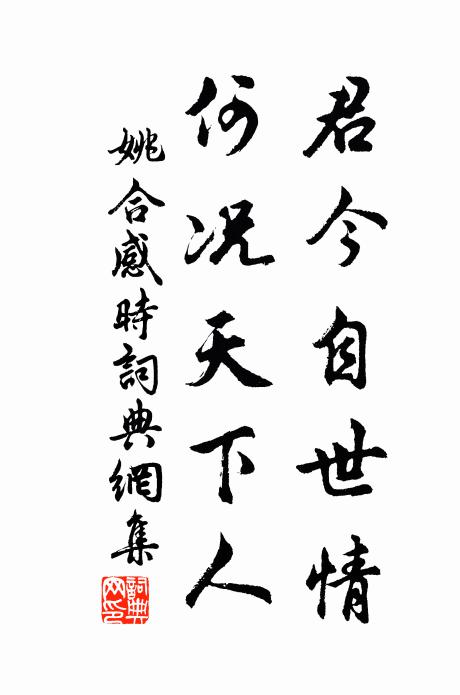 君今自世情
何况天下人
姚合感時詞典網集
詞典网印